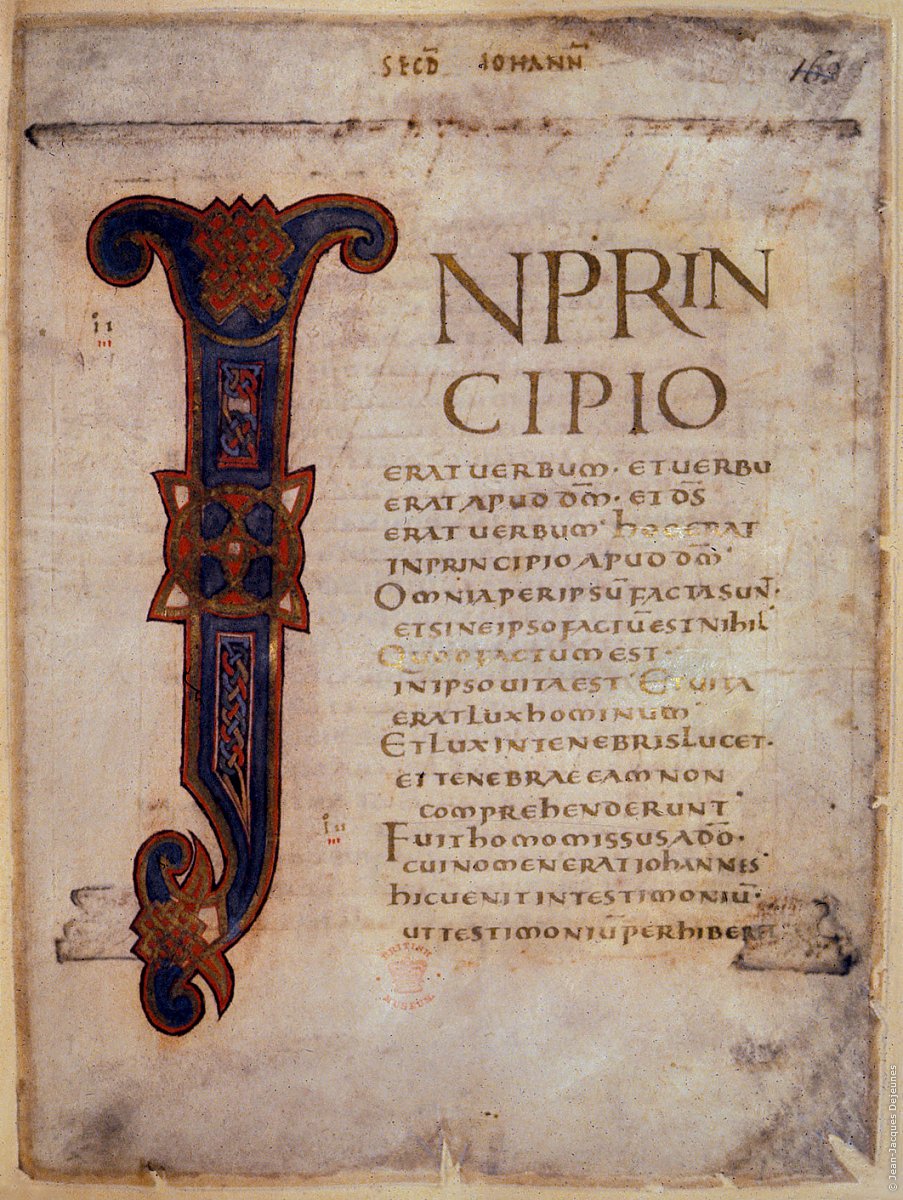 SECD̄ IOHANN̄
162
INPRIN
CIPIO
ERAT UERBUM · ET UERBU
ERAT APUD DM̄ · ET DS̄
ERAT UERBUM · HOC ERAT
IN PRINCIPIO APUD DM̄ ·
OMNIA PER IPSŪ FACTA SUNT ·
ET SINE IPSO FACTŪ EST NIHIL
QUOD FACTUM EST ·
IN IPSO UITA EST · ET UITA
ERAT LUX HOMINUM
ET LUX IN TENEBRIS LUCET ·
ET TENEBRAE EAM NON
COMPREHENDERUNT ·
FUIT HOMO MISSUS A DŌ ·
CUI NOMEN ERAT IOHANNES
HIC UENIT IN TESTIMONIŪ ·
UT TESTIMONIŪ PERHIBERET
BRITISH
MUSEUM
© Jean-Jacques Dejeunes